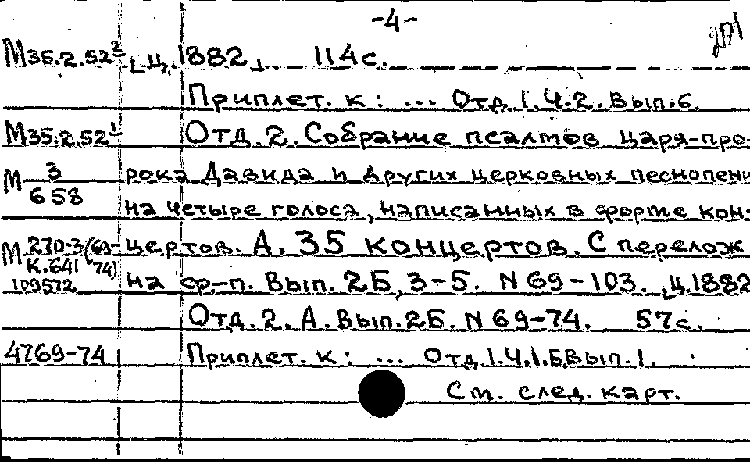 -4-
М35.2.52² [ц. 1882]. 114с.
Приплет. к: ... Отд.1.Ч.2.Вып.6.
М35.2.52¹ Отд.2. Собрание псалмов царя-про-
М 3/658 рока Давида и других церковных песнопени
на четыре голоса, написанных в форме кон-
М 270-3(69-74)/К.641 цертов. А. 35 концертов. С перелож
109572 на ф-п. Вып. 2Б, 3-5. N69-103. [ц.1882
Отд.2.А.Вып.2Б. N69-74. 57с.
4769-74 Приплет. к: ... Отд.1.Ч.1.Б.Вып.1.
См. след. карт.